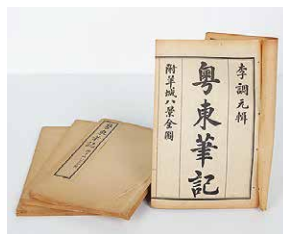 李調元輯
粤東筆記
附羊城八景全圖